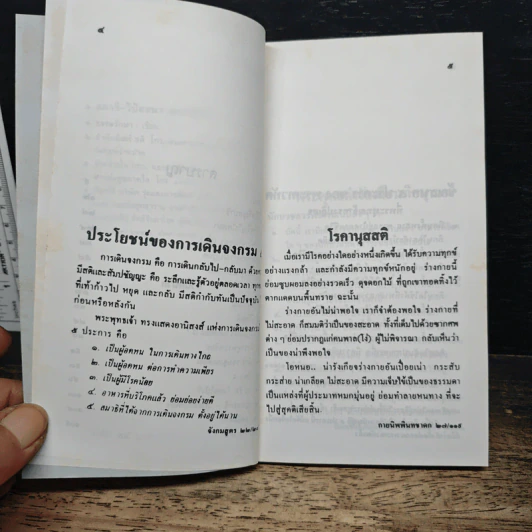 ๔
ประโยชน์ของการเดินจงกรม
การเดินจงกรม คือ การเดินกลับไป-กลับมา ด้วย
มีสติและสัมปชัญญะ คือ ระลึกและรู้ตัวอยู่ตลอดเวลา ทุก
ที่เท้าก้าวไป หยุด และกลับ มีสติกำกับทันเป็นปัจจุบัน
ก่อนหรือหลังกัน
พระพุทธเจ้า ทรงแสดงอานิสงส์ แห่งการเดินจงกรม
๕ ประการ คือ
๑. เป็นผู้อดทน ในการเดินทางไกล
๒. เป็นผู้อดทน ต่อการทำความเพียร
๓. เป็นผู้มีโรคน้อย
๔. อาหารที่บริโภคแล้ว ย่อมย่อยง่ายดี
๕. สมาธิที่ได้จากการเดินจงกรม ตั้งอยู่ได้นาน
จังกมสูตร
๕
โรคานุสสติ
เมื่อเรามีโรคอย่างใดอย่างหนึ่งเกิดขึ้น ได้รับความทุกข์
อย่างแรงกล้า และกำลังมีความทุกข์หนักอยู่ ร่างกายนี้
ย่อมซูบผอมลงอย่างรวดเร็ว ดุจดอกไม้ ที่ถูกเขาทอดทิ้งไว้
ตากแดดบนพื้นทราย ฉะนั้น
ร่างกายอันไม่น่าพอใจ เราก็จำต้องพอใจ ร่างกายที่
ไม่สะอาด ก็สมมติว่าเป็นของสะอาด ทั้งที่เต็มไปด้วยซากศพ
ต่าง ๆ ย่อมปรากฏแก่คนพาล(โง่) ผู้ไม่พิจารณา กลับเห็นว่า
เป็นของน่าพึงพอใจ
โอหนอ.. น่ารังเกียจร่างกายอันเปื่อยเน่า กระสับ
กระส่าย น่าเกลียด ไม่สะอาด มีความเจ็บไข้เป็นของธรรมดา
เป็นแหล่งที่ผู้ประมาทพมกมุ่นอยู่ ย่อมทำลายหนทาง ที่จะ
ไปสู่สุคติเสียสิ้น
กายนิพพินทชาดก ๒๗/๑๑๙